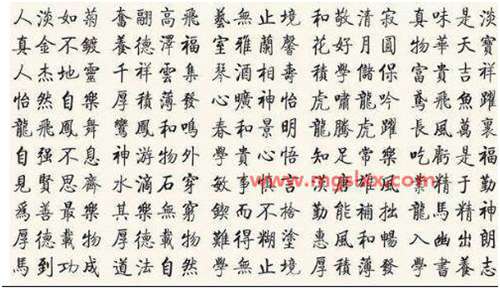 人淡如菊 奮翮高飛 藝無止境 和敬清寂 真味是淡
真金不鍍 養德澤福 室雅蘭馨 花好月圓 物華天寶
人杰地靈 千祥雲集 琴酒相壽 積學儲保 富貴吉祥
怡然自樂 厚積薄發 心曠神怡 虎嘯龍吟 鳶飛魚躍
龍飛鳳舞 鸞鳳和鳴 春和景明 龍騰虎躍 長風萬裏
自强不息 神游物外 學貴心悟 知足常樂 吃虧是福
見賢思齊 水滴石穿 敏事 精于勤
為善最樂 其樂無窮 鍥而不捨 勤能補拙 龍馬精神
厚德載物 厚德載物 難得糊塗 惠風和暢 入幽出朗
馬到功成 道法自然 學無止境 厚積薄發 學書養志